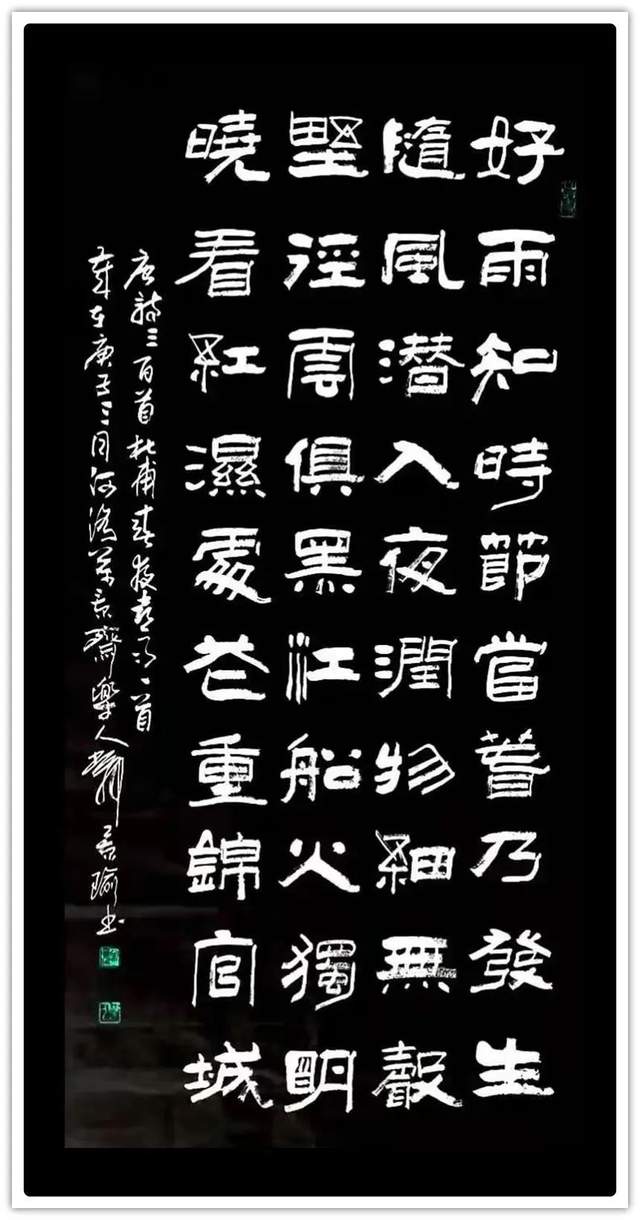 好雨知時節當春乃發生
隨風潜入夜潤物細無聲
野徑雲俱黑江船火獨明
曉看紅濕處花重錦官城
唐詩三百首杜甫春夜喜雨一首
歲在庚子三月河洛景齋樂人景瑜书